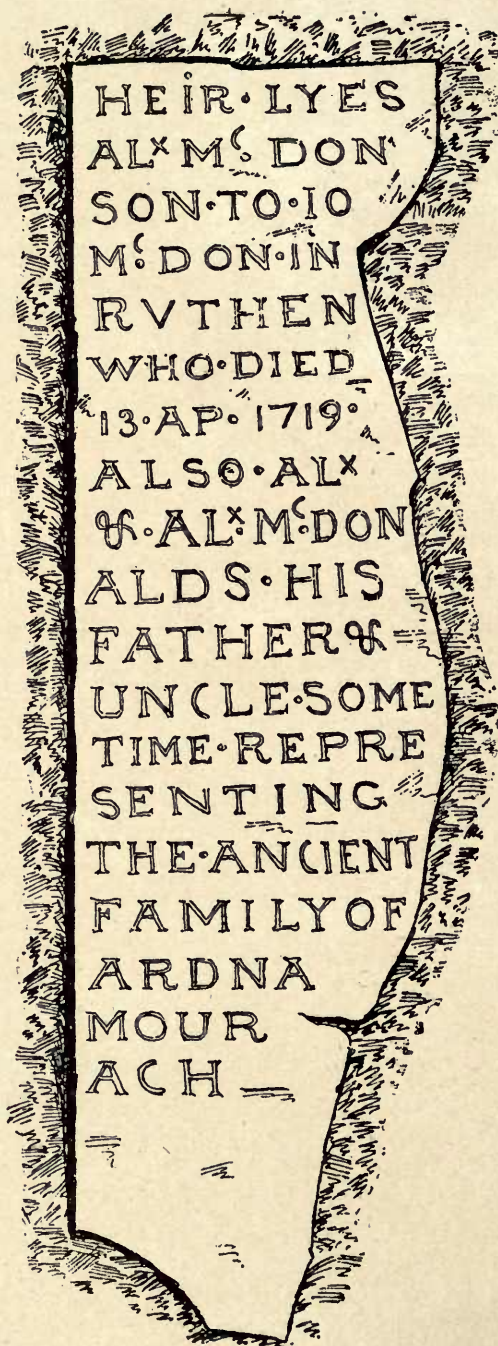 HEIR·LYES
ALˣ Mᶜ. DON
SON·TO·IO
Mᶜ. DON·IN
RVTHEN
WHO·DIED
13·AP·1719·
ALSO·ALˣ
&·ALˣ. Mᶜ. DON
ALDS·HIS
FATHER &
UNCLE·SOME
TIME·REPRE
SENTING
THE·ANCIENT
FAMILY OF
ARDNA
MOUR
ACH